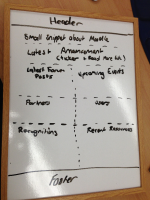 Header
Small Snippet about Mozilla
Latest Announcement
(Ticker + Read More btn.)
Latest Forum Posts
Upcoming Events
Partners
users
Recognitions
Recent Resources
Footer